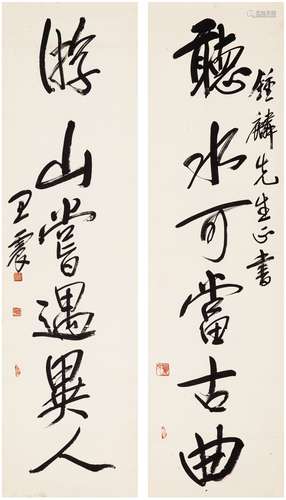 聽水可當古曲
鍾麟先生正書
游山嘗遇異人
王震